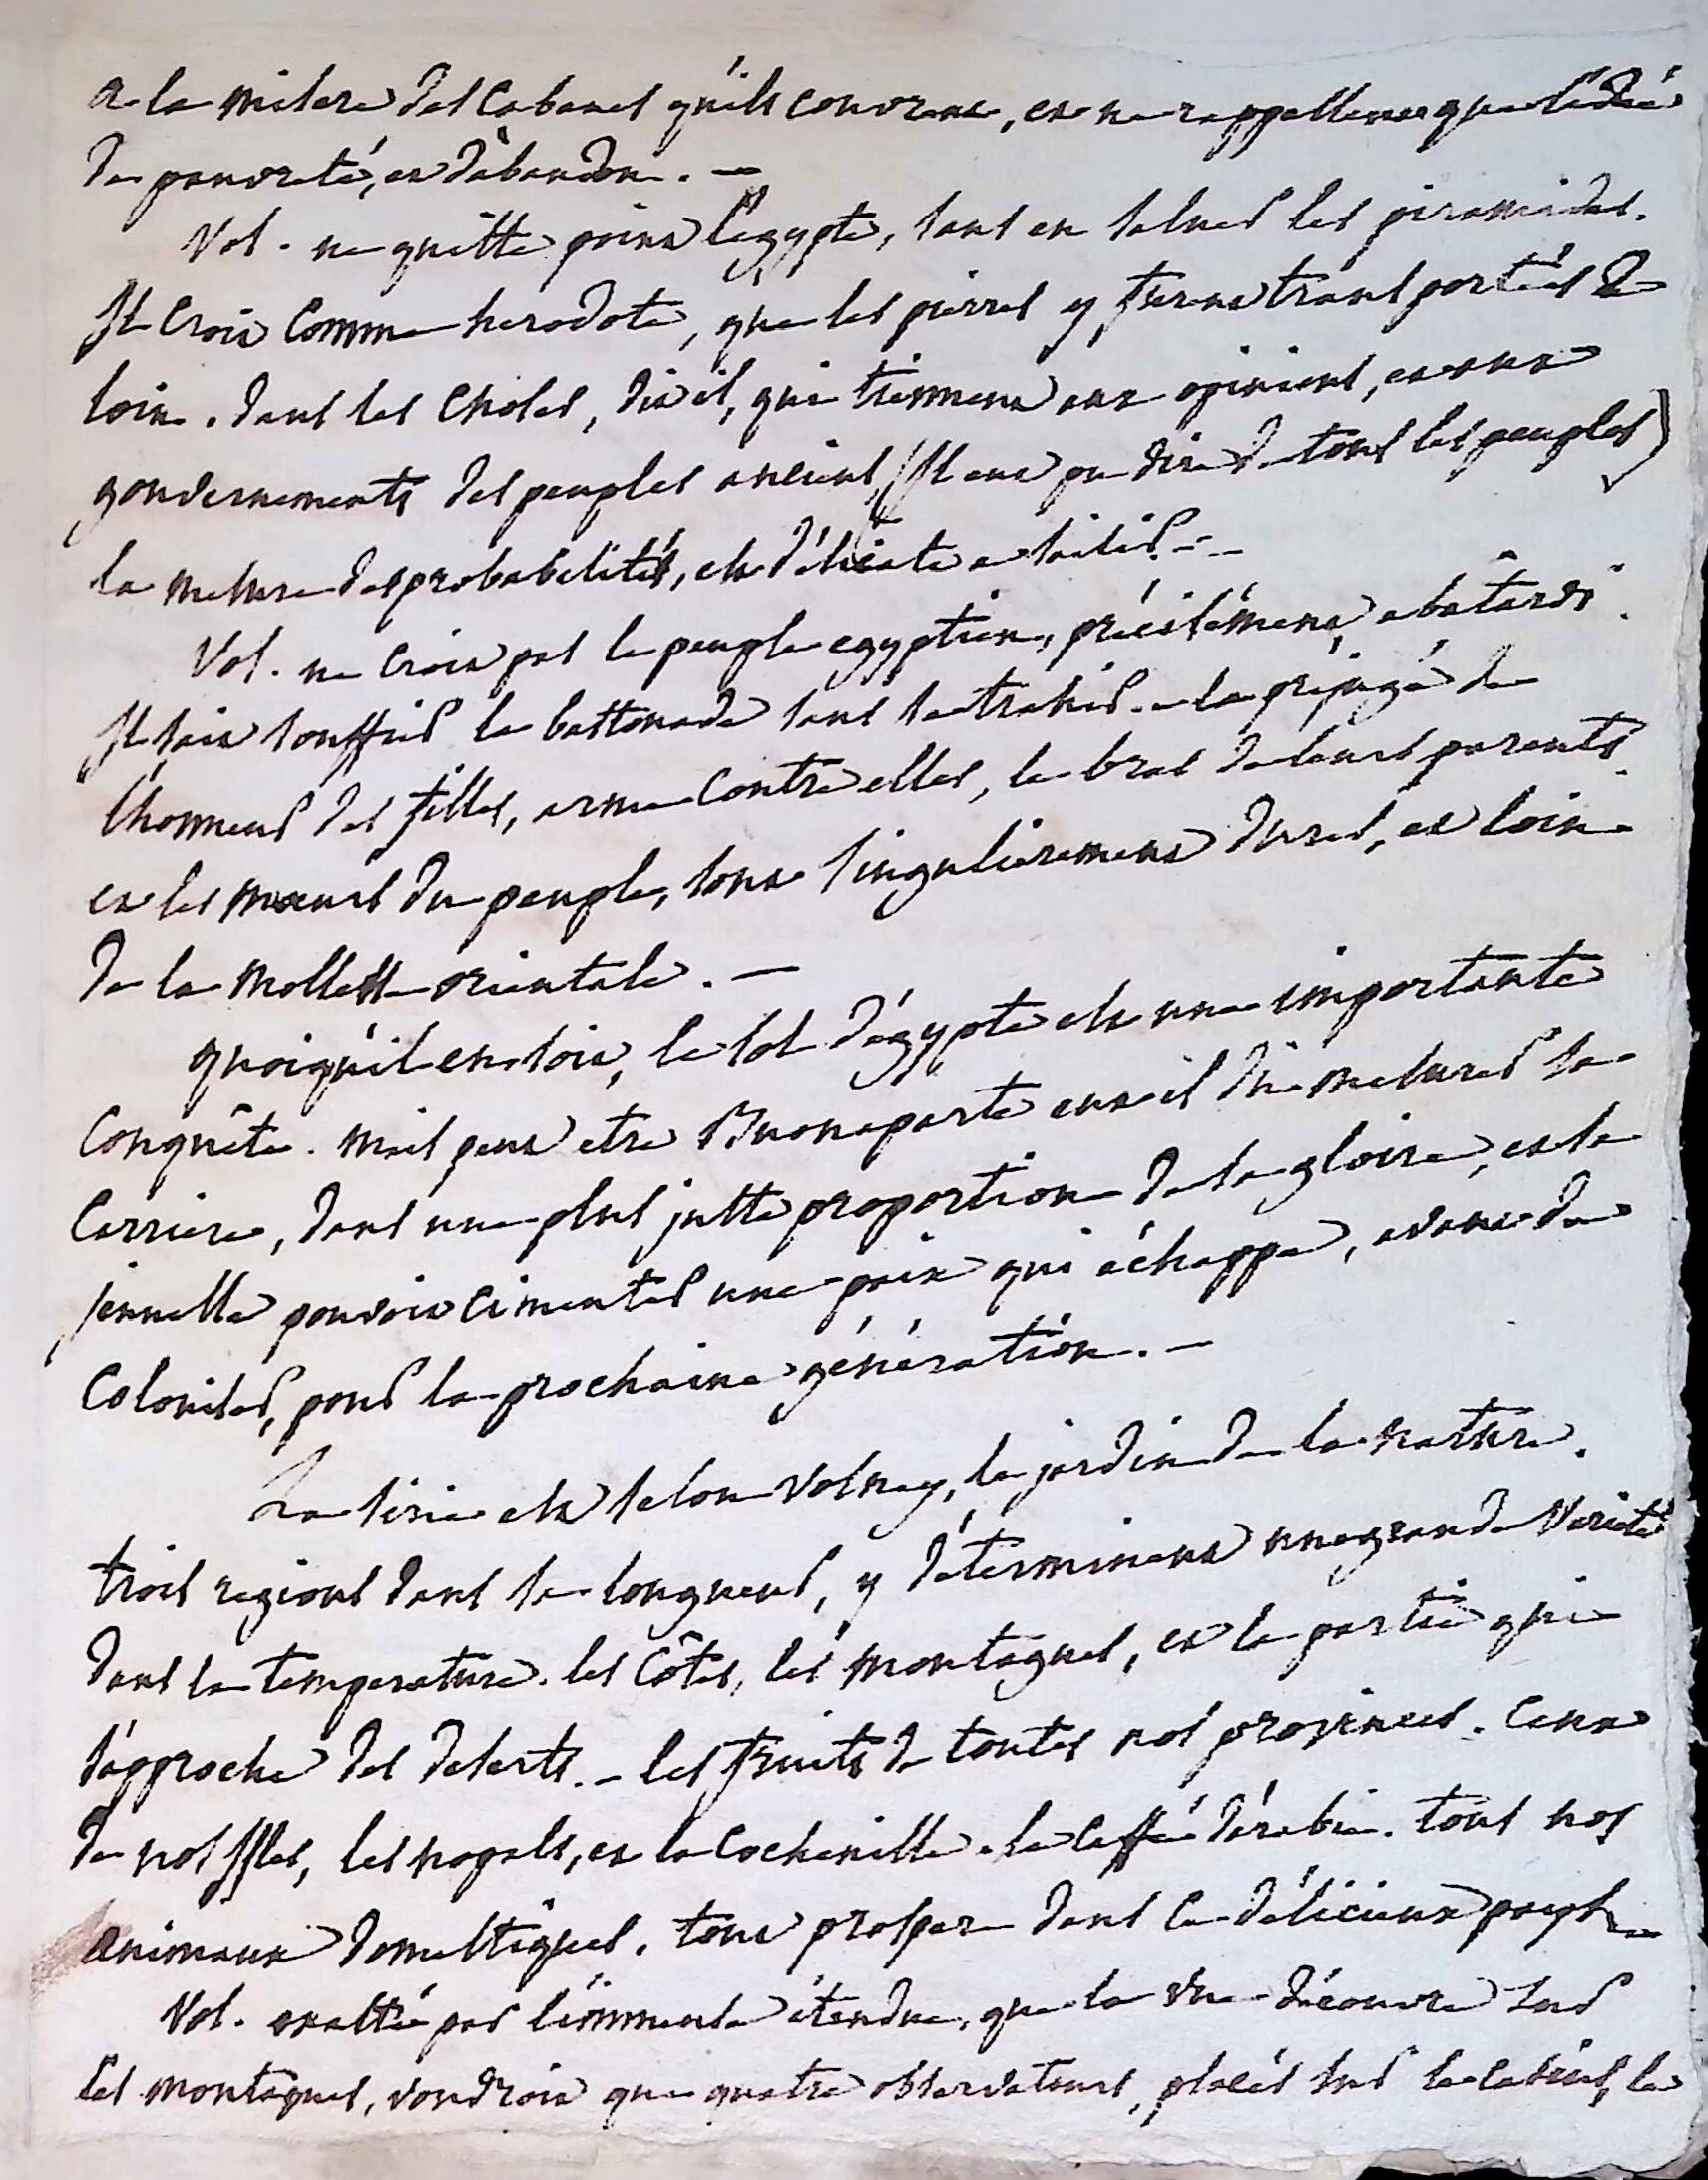 a la misere des cabanes qu'ils couvrent, et ne rappellent que l'idée
de pauvreté, et d'abandon. —
Vol. ne quitte point l'egypte, sans en saluer les piramides.
Il croit comme herodote, que les pierres y furent transportées de
loin. dans les choses, dit il, qui tiennent aux opinions, et aux
gouvernements des peuples anciens, (Il eut pu dire de tous les peuples)
la mesure des probabilités, est délicate a saisir. —
Vol. ne croit pas le peuple egyptien, précisément abatardi.
Il sait souffrir la bastonade sans se trahir. le préjugé de
l'honneur des filles, arme contre elles, le bras de leurs parents.
et les mœurs du peuple, sont singulierement dures, et loin
de la mollesse orientale. —
quoiqu'il en soit, le sol d'égypte est une importante
conquête. mais peut etre Buonaparte eut il du mesurer sa
carriere, dans une plus juste proportion de sa gloire, et sa
jeunesse pouvoit cimenter une paix qui échappe, avant de
coloniser, pour la prochaine génération. —
La sirie est selon Volney, le jardin de la nature.
trois regions dans sa longueur, y déterminent une grande varieté
dans la temperature. les côtes, les montagnes, et la partie qui
s'approche des deserts. — les fruits de toutes nos provinces. ceux
de nos Isles, les nopals, et la cochenille. le caffé d'arabie. tous nos
animaux domestiques. tout prospere dans ce délicieux pays. —
Vol. exalté par l'immense étendue, que la vue découvre sur
les montagnes, voudroit que quatre observateurs, placés sur le casius, le